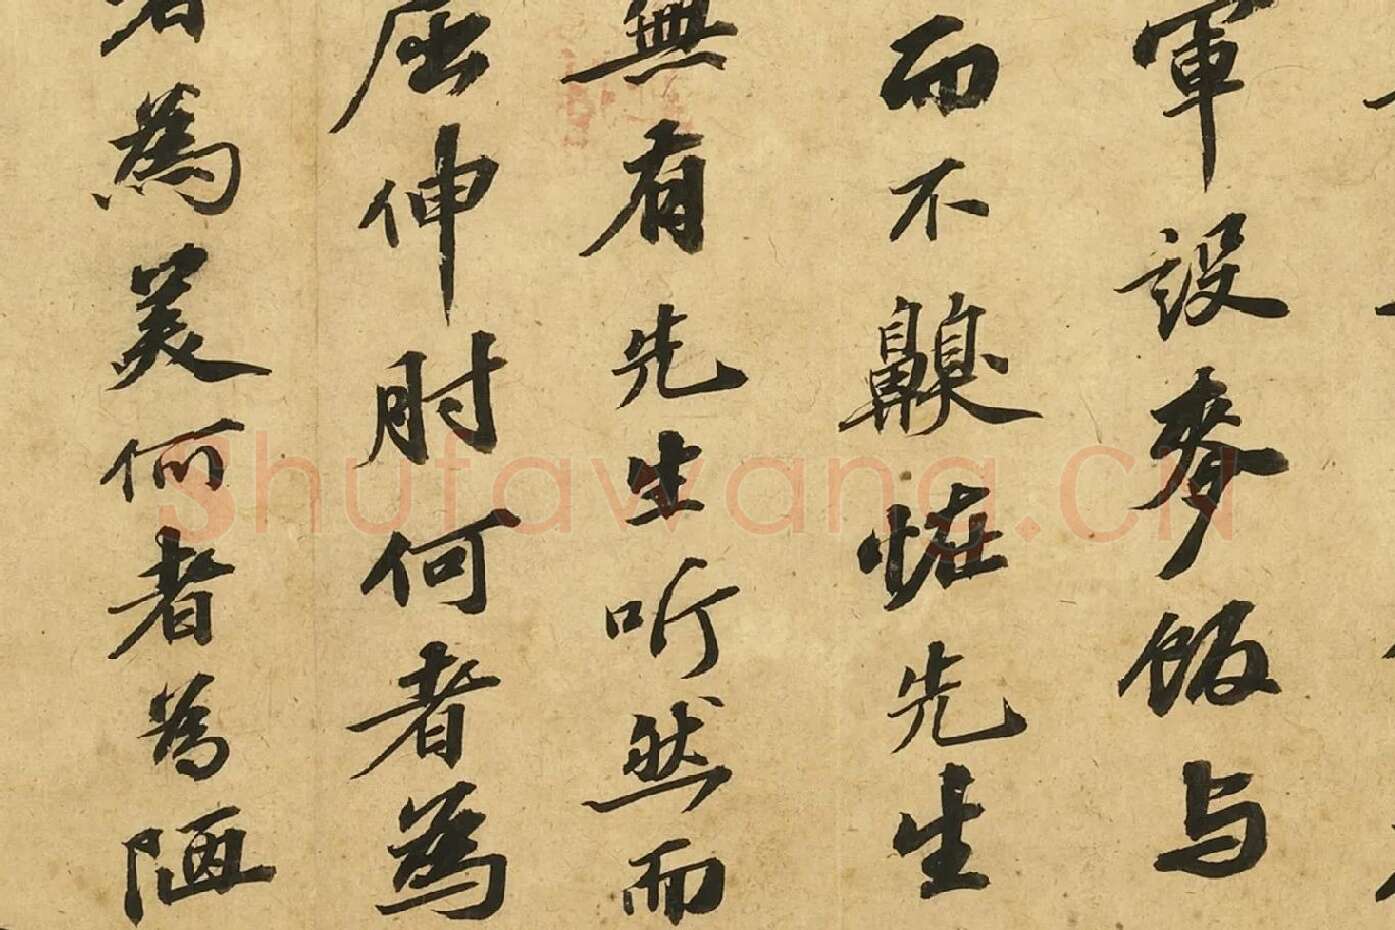 軍設麥飯与
而不齅恠先生
無有先生听然而
屈伸肘何者為
者為美何者為陋
Shufawang.CN